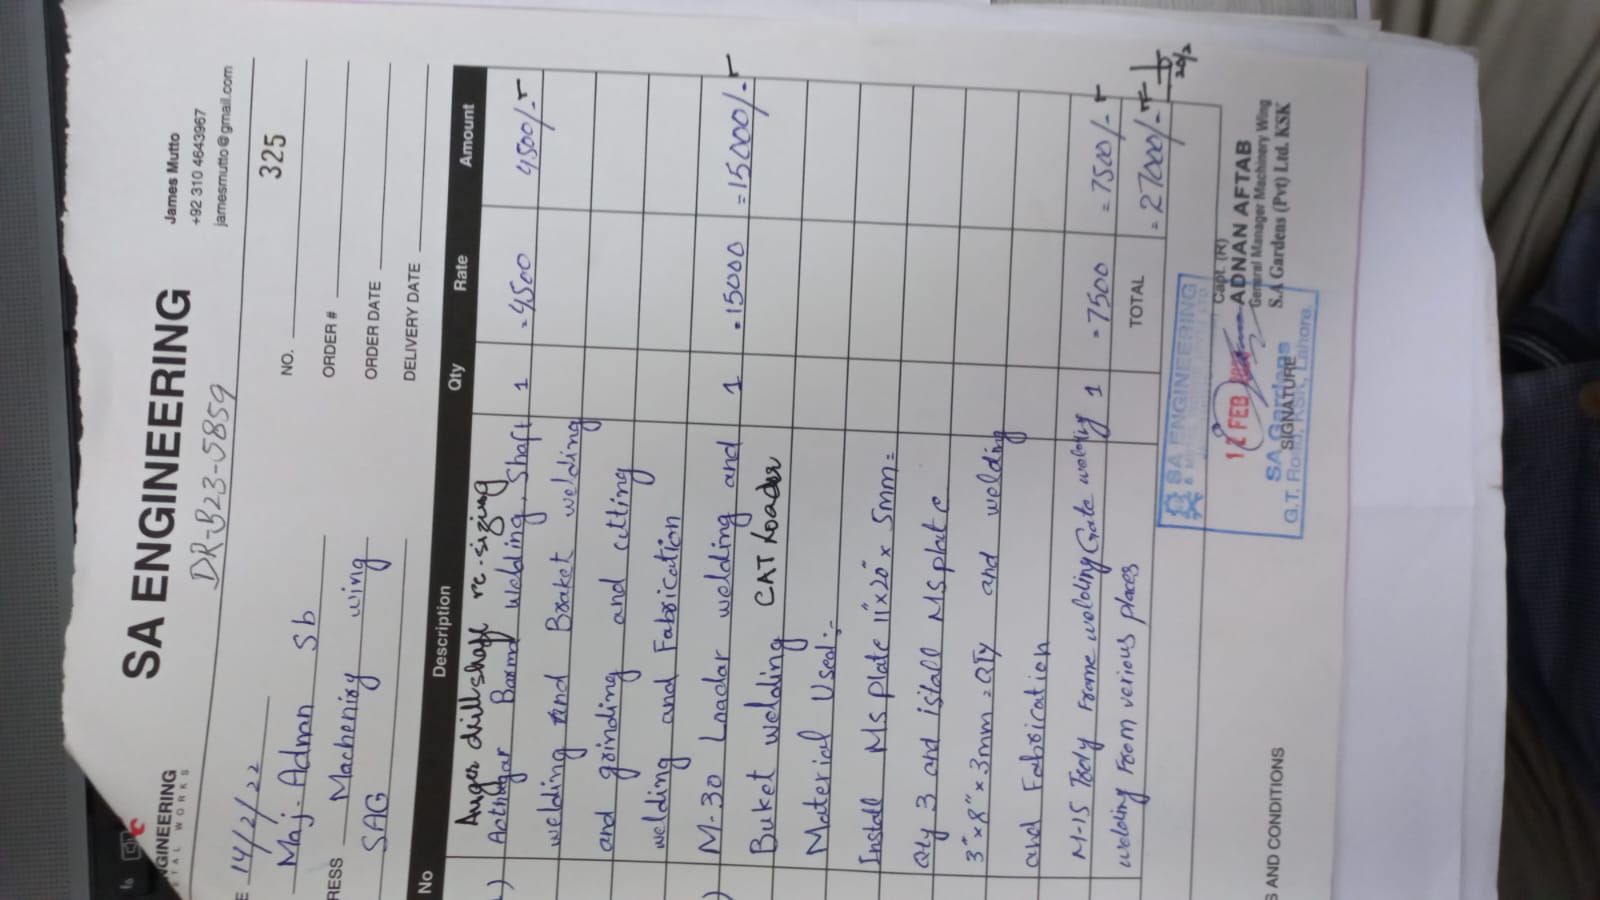 NGINEERING
TAL WORKS
SA ENGINEERING
DR-B23-5859
James Mutto
+92 310 4643967
jamesmutto@gmail.com
E 14/2/22
Maj. Adnan Sb
RESS Machenixy wing
SAG
NO. 325
ORDER #
ORDER DATE
DELIVERY DATE
No Description Qty Rate Amount
Auger drill shaft re-sizing
) Barma welding, Shaft 1 4500 4500/-
welding And Braket welding
and grinding and cutting
welding and Fabrication
) M-30 Loadar welding and 1 15000 =15000/-
Buket welding CAT Loader
Material Used:-
Install MS plate 11"x20"x 5mm=
Qty 3 and istall MS plate
3"x8"x3mm=QTY and welding
and Fabrication
M-15 Frame welding Gate welding 1 7500 =7500/-
welding From verious places
TOTAL =27000/-
20/2
SA ENGINEERING
12 FEB
SA Gardens
G.T. Road, KSK, Lahore.
SIGNATURE
Capt. (R)
ADNAN AFTAB
General Manager Machinery Wing
S.A Gardens (Pvt) Ltd. KSK
S AND CONDITIONS